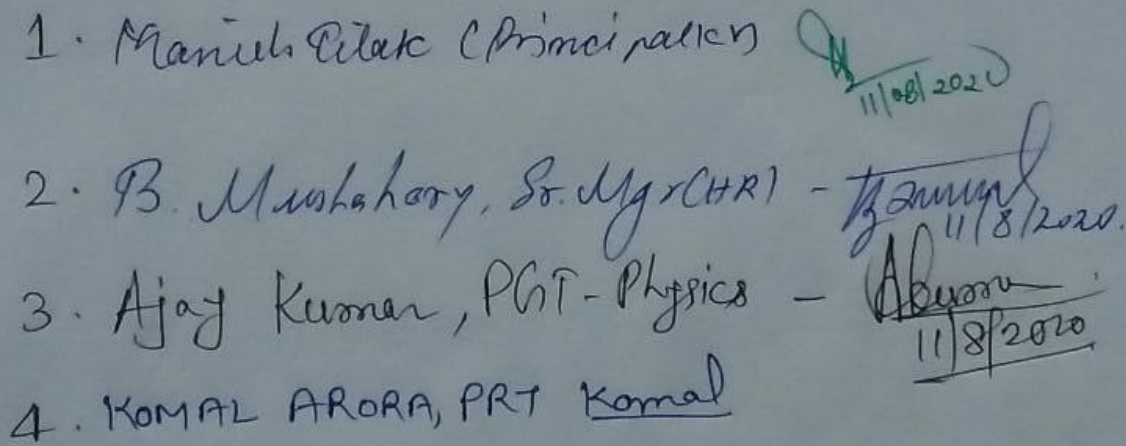 1. Manish Tilak (Principal)
11/08/2020
2. B. Mushahary, Sr. Mgr (HR) -
11/8/2020.
3. Ajay Kumar, PGT-Physics - AKumar
11/8/2020
4. KOMAL ARORA, PRT Komal